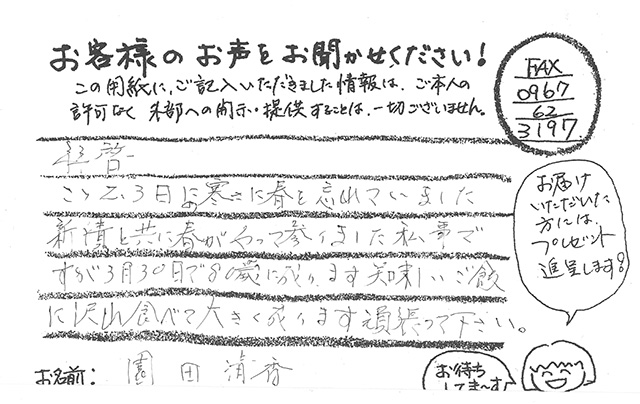 お客様のお声をお聞かせください！
この用紙に、ご記入いただきました情報は、ご本人の
許可なく外部への開示・提供することは、一切ございません。
FAX
0967
62
3197
拝啓
ここ2、3日は寒さに春を忘れていました
新漬と共に春がやって参りました私事で
すが3月30日で80歳に成ります美味しいご飯
に沢山食べて大きく成ります頑張って下さい。
お届け
いただいた
方には、
プレゼント
進呈します！
お名前： 園田清香
お待ち
してまーす♪